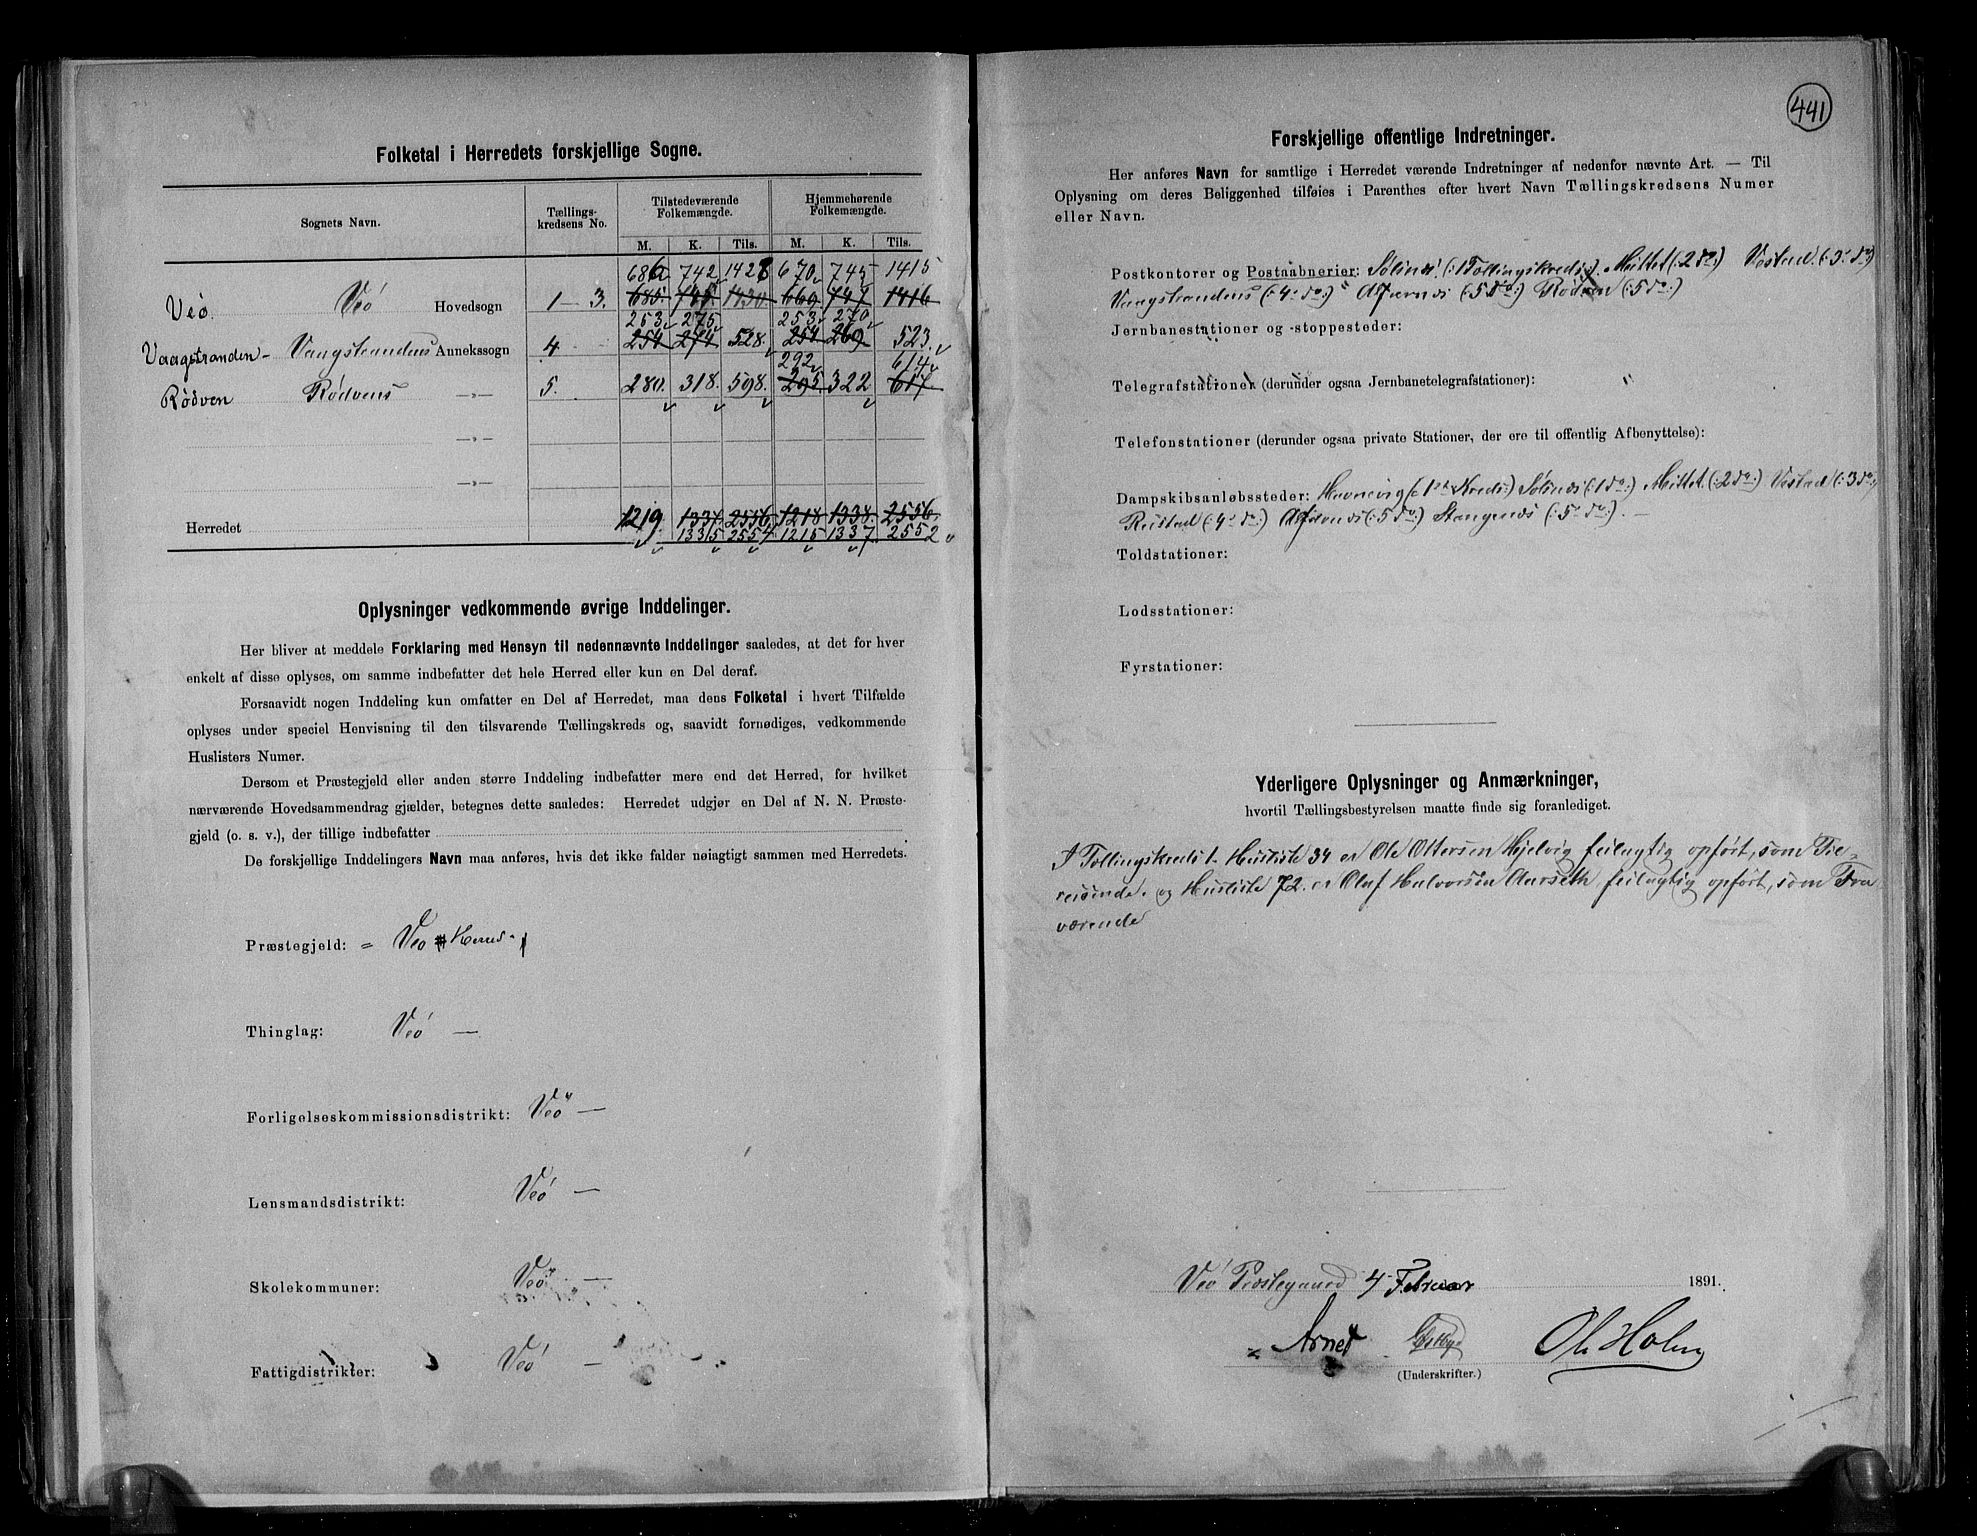 Folketal i Herredets forskjellige Sogne.
Sognets Navn. Tællings- kredsens No. Tilstedeværende Folkemængde. Hjemmehørende Folkemængde.
M. K. Tils. M. K. Tils.
686 742 1428 670 745 1415
Veø. Veø Hovedsogn 1-3. 685 745 1430 669 747 1416
253 275 253 270
Vaagstranden- Vaagstrandens Annekssogn 4 254 274 528. 254 269 523.
292 614
Rødven Rødvens —„— 5. 280. 318. 598. 295. 322 617
—„—
—„—
Herredet 1219. 1337 2556. 1218 1338. 2556.
1335 2554 1215 1337. 2552
Oplysninger vedkommende øvrige Inddelinger.
Her bliver at meddele Forklaring med Hensyn til nedennævnte Inddelinger saaledes, at det for hver
enkelt af disse oplyses, om samme indbefatter det hele Herred eller kun en Del deraf.
Forsaavidt nogen Inddeling kun omfatter en Del af Herredet, maa dens Folketal i hvert Tilfælde
oplyses under speciel Henvisning til den tilsvarende Tællingskreds og, saavidt fornødiges, vedkommende
Huslisters Numer.
Dersom et Præstegjeld eller anden større Inddeling indbefatter mere end det Herred, for hvilket
nærværende Hovedsammendrag gjælder, betegnes dette saaledes: Herredet udgjør en Del af N. N. Præste-
gjeld (o. s. v.), der tillige indbefatter
De forskjellige Inddelingers Navn maa anføres, hvis det ikke falder nøiagtigt sammen med Herredets.
Præstegjeld: = Veø Herred
Thinglag: Veø —
Forligelseskommissionsdistrikt: Veø —
Lensmandsdistrikt: Veø —
Skolekommuner: Veø —
Fattigdistrikter: Veø —
441
Forskjellige offentlige Indretninger.
Her anføres Navn for samtlige i Herredet værende Indretninger af nedenfor nævnte Art. — Til
Oplysning om deres Beliggenhed tilføies i Parenthes efter hvert Navn Tællingskredsens Numer
eller Navn.
Postkontorer og Postaabnerier: Sølsnæs (:1 Tællingskreds:) Mittet (:2 do:) Vestad (:3 do:)
Vaagstrandens (:4 do:) Afsernæs (:5 do:) Rødven (:5 do:)
Jernbanestationer og -stoppesteder:
Telegrafstationer (derunder ogsaa Jernbanetelegrafstationer): "
Telefonstationer (derunder ogsaa private Stationer, der ere til offentlig Afbenyttelse):
Dampskibsanløbssteder: Havnevig (:1ste Kreds:) Sølsnæs (:1 do:) Mittet (:2 do:) Vestad (:3 do:)
Reistad (:4 do:) Afsernæs (:5 do:) Stangenæs (:5 do:). —
Toldstationer:
Lodsstationer:
Fyrstationer:
Yderligere Oplysninger og Anmærkninger,
hvortil Tællingsbestyrelsen maatte finde sig foranlediget.
I Tællingskreds 1 Husliste 34 er Ole Ottersen Hjelvig feilagtig opført, som Til-
reisende. og Husliste 72. er Olaf Halvorsen Aarseth feilagtig opført, som Fra
værende
Veø Præstegaard 4 Februar 1891.
Arnet Østbye Ole Holm
(Underskrifter.)